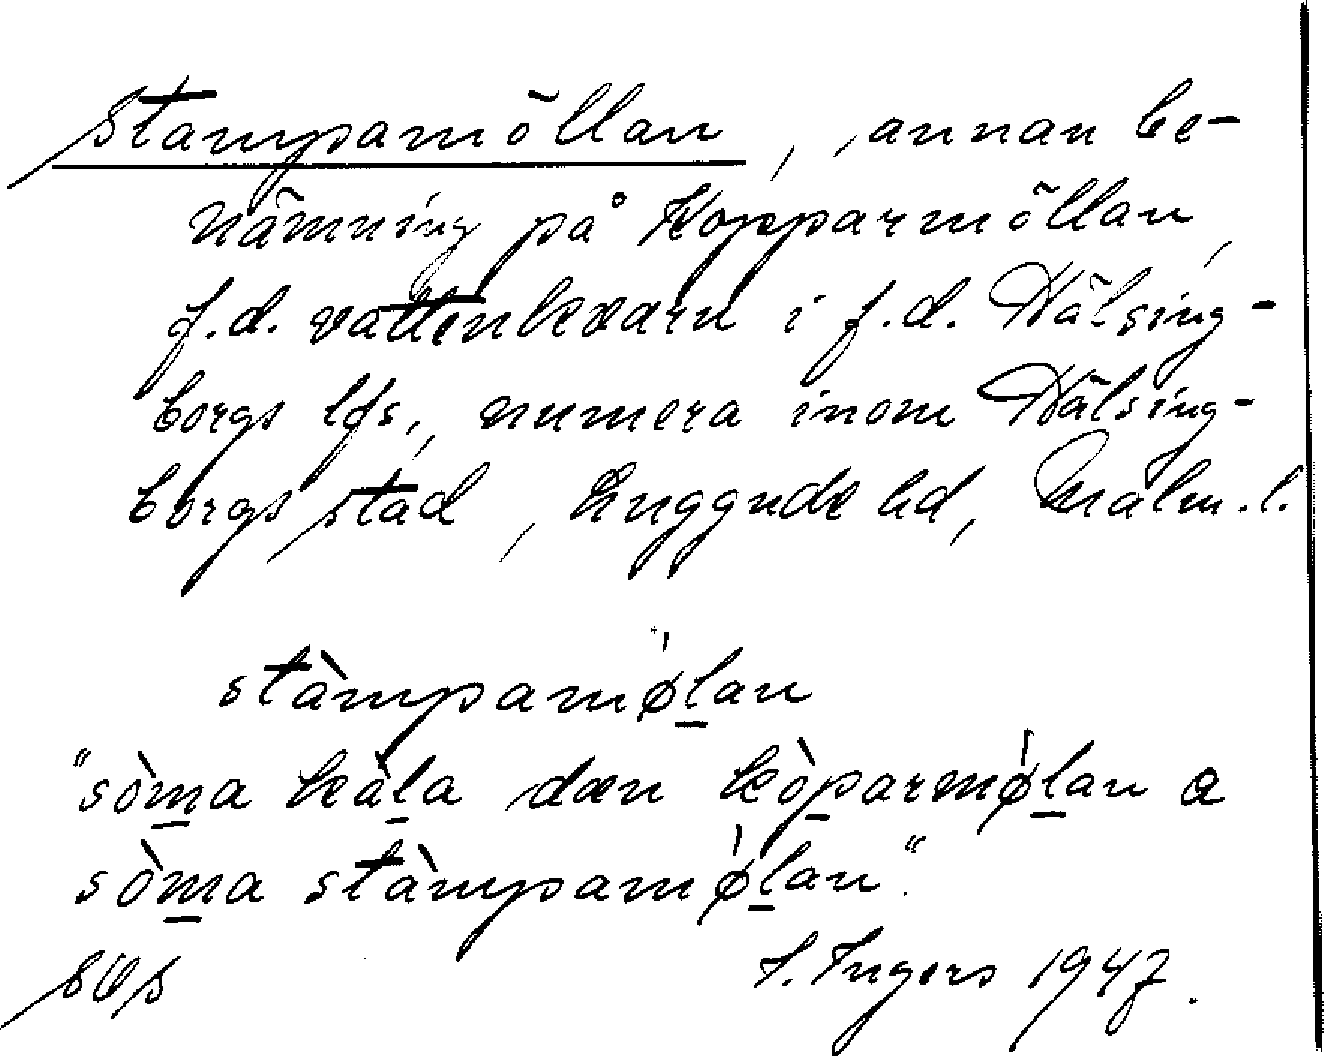 Stampamöllan, annan be-
nämning på Kopparmöllan,
f.d. vattenkvarn i f.d. Hälsing-
borgs lfs., numera inom Hälsing-
borgs stad, Luggude hd, Malm. l.
stàmpamǿl̲an
"sòm̲a kàl̲a dæn kòp̲armǿl̲an a
sòm̲a stàmpamǿl̲an".
I. Ingers 1947.